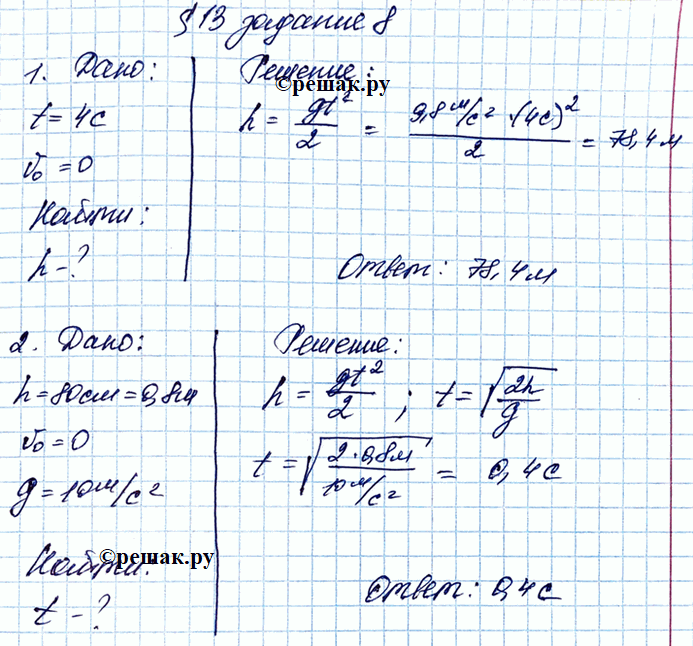 § 13 задание 8
1. Дано:
t = 4с
v₀ = 0
Найти:
h - ?
Решение:
©решак.ру
h = gt²/2 = 9,8 м/с² · (4с)²/2 = 78,4 м
Ответ: 78,4 м
2. Дано:
h = 80см = 0,8м
v₀ = 0
g = 10 м/с²
Найти:
©решак.ру
t - ?
Решение:
h = gt²/2 ; t = √(2h/g)
t = √(2·0,8м/10 м/с²) = 0,4с
Ответ: 0,4с